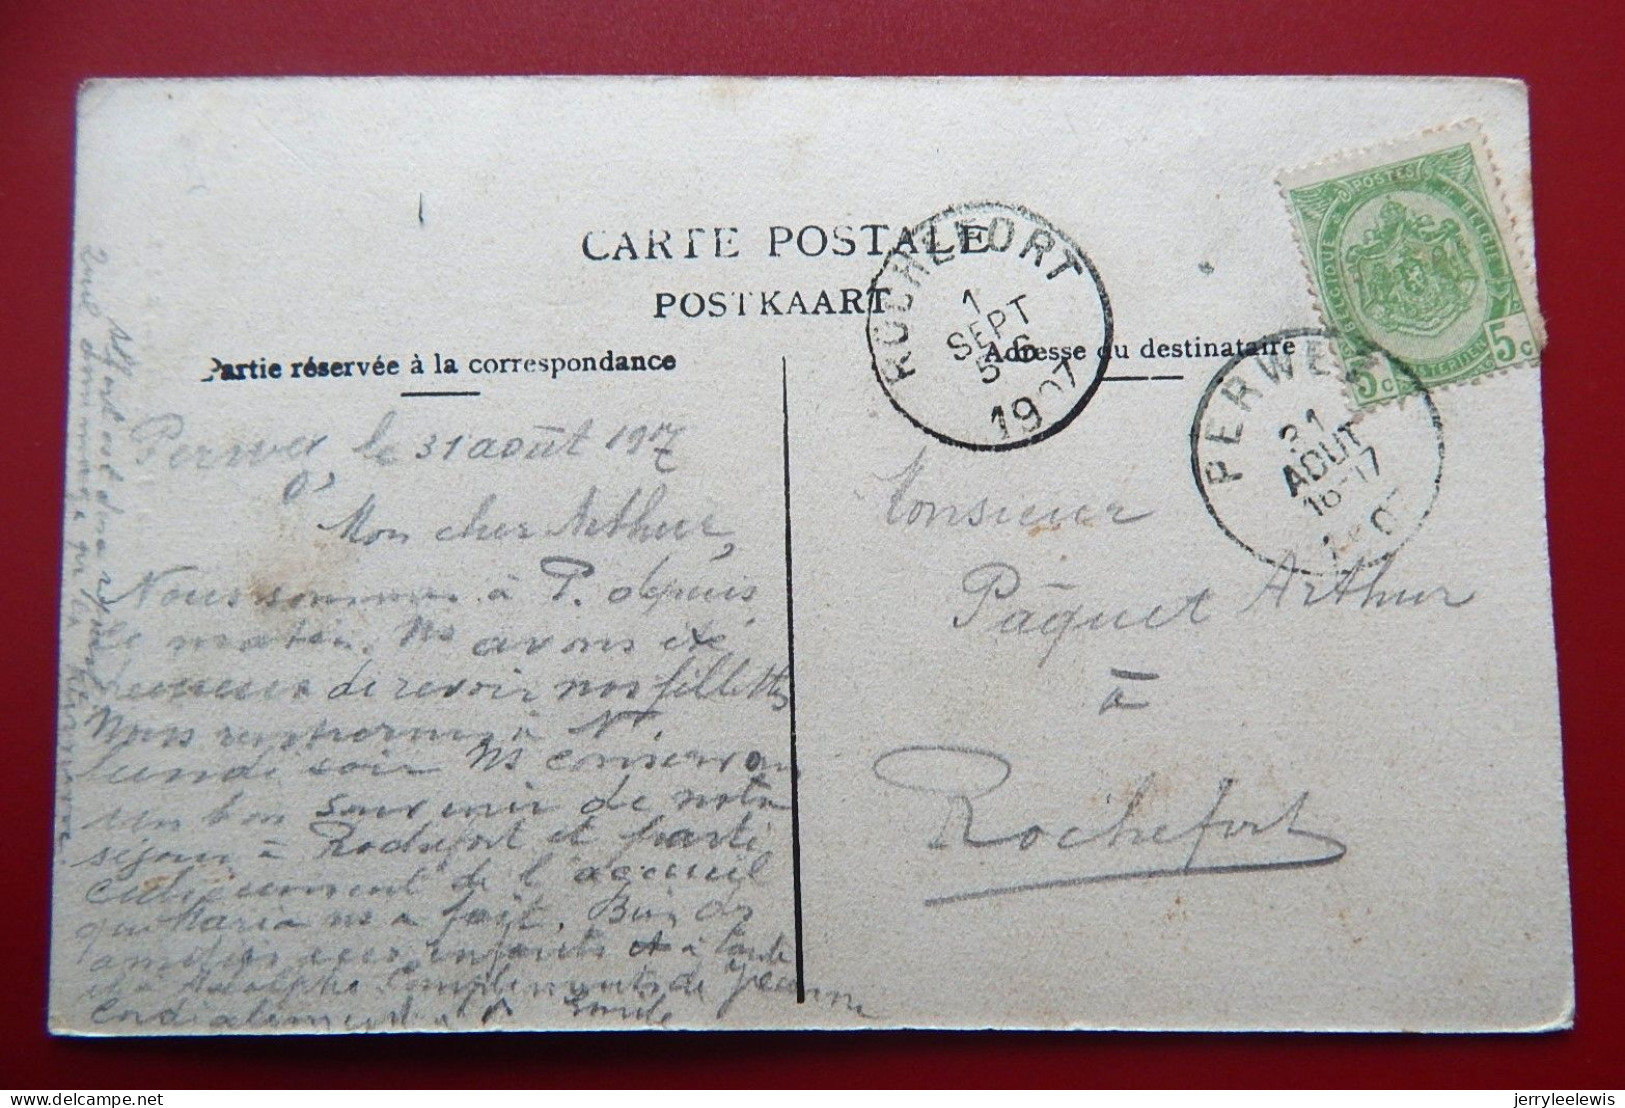 CARTE POSTALE
POSTKAART
Partie réservée à la correspondance
Adresse du destinataire
ROCHEFORT
1
SEPT
5-6
1907
PERWEZ
31
AOUT
16-17
1907
POSTES
BELGIQUE
BELGIE
5c
5c
Perwez le 31 août 1907
Mon cher Arthur,
Nous sommes à P. depuis
le matin. Ns avons été
heureux de revoir nos fillettes
Nous rentrerons à N.
lundi soir Ns conservons
un bon souvenir de notre
séjour à Rochefort et parti
culièrement de l'accueil
que Maria ns a fait. Bien des
amitiés aux enfants et à
et à Adolphe Compliments de Jeanne
Cordialement à Emile
Monsieur
Pâquet Arthur
à
Rochefort
jerryleelewis